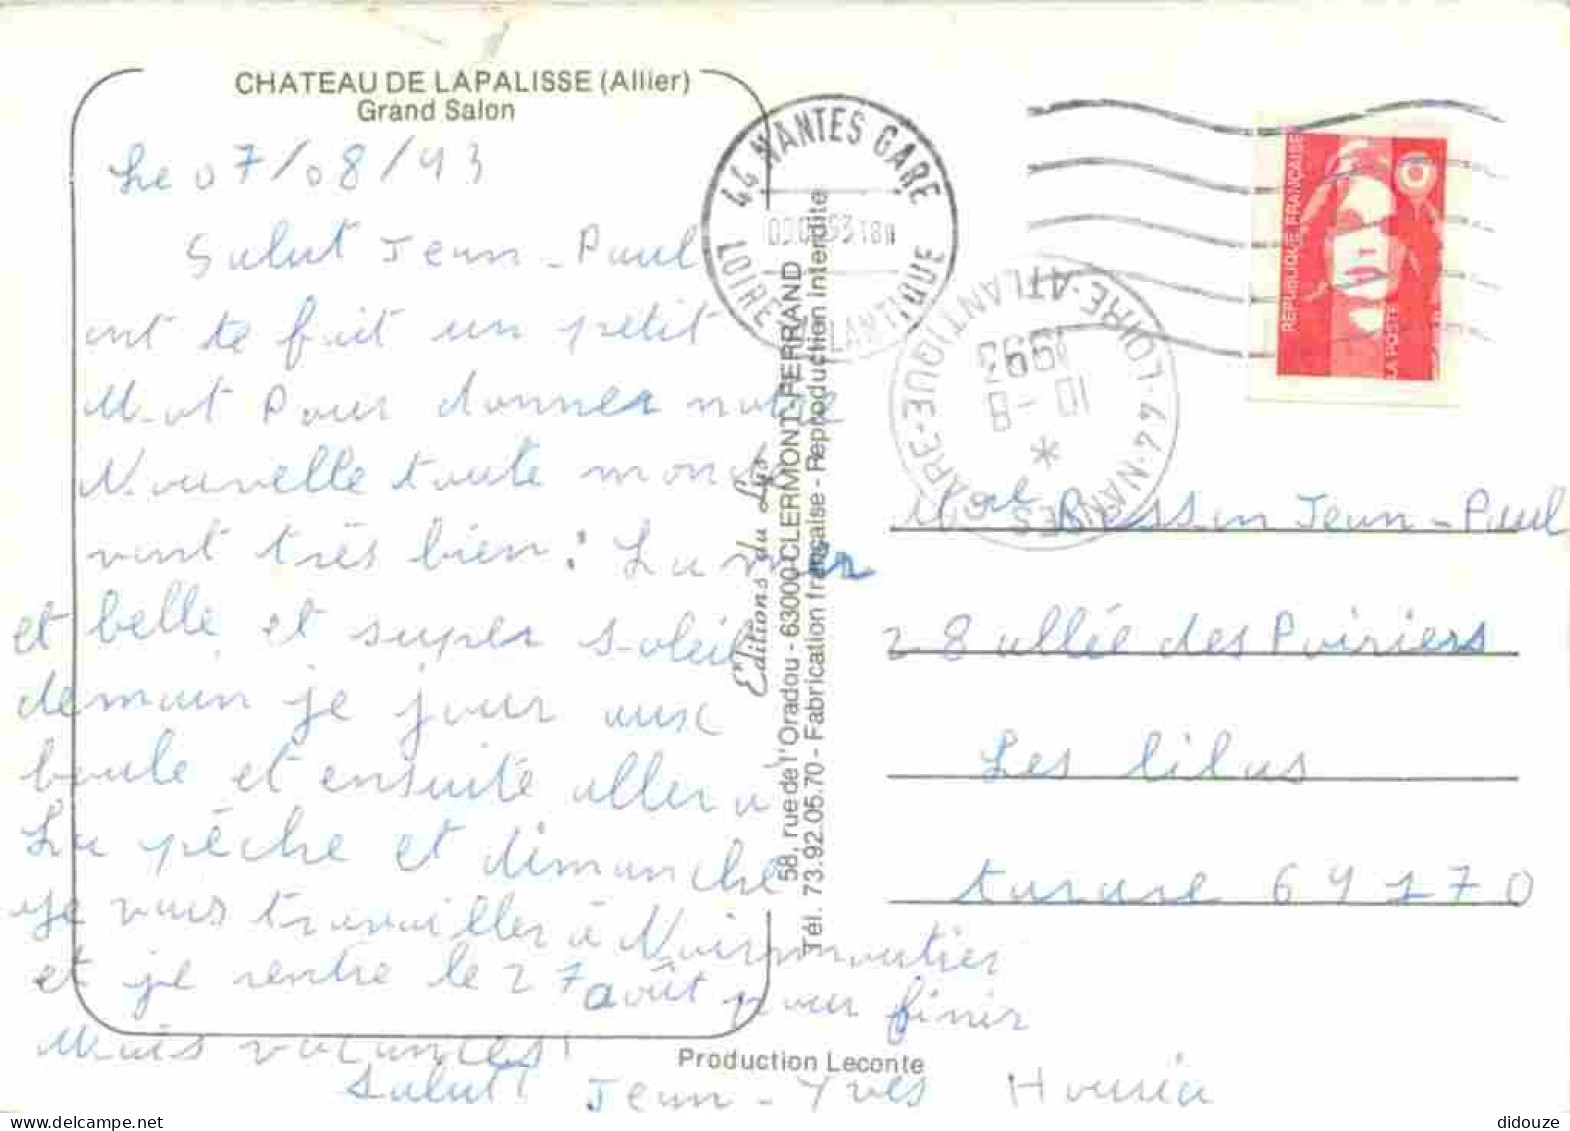 CHATEAU DE LAPALISSE (Allier)
Grand Salon
Le 07/08/93
Salut Jean-Paul
te fait un petit
Mot Pour donner notre
Nouvelle toute monde
vont très bien: La mer
et belle et super soleil
demain je jour aux
boule et ensuite aller a
La pêche et dimanche
je vais travailler à Noirmoutier
et je rentre le 27 août pour finir
Mais vacances!
Salut! Jean-Yves
Production Leconte
Editions du Lys
58, rue de l'Oradou - 63000 CLERMONT-FERRAND
Tél. 73.92.05.70 - Fabrication française - Reproduction interdite
44 NANTES GARE
LOIRE ATLANTIQUE
44 NANTES GARE LOIRE-ATLANTIQUE
10-8
1993
*
REPUBLIQUE FRANÇAISE
LA POSTE
Jean-Paul
28 allée des Poiriers
Les lilas
tarare 69170
didouze